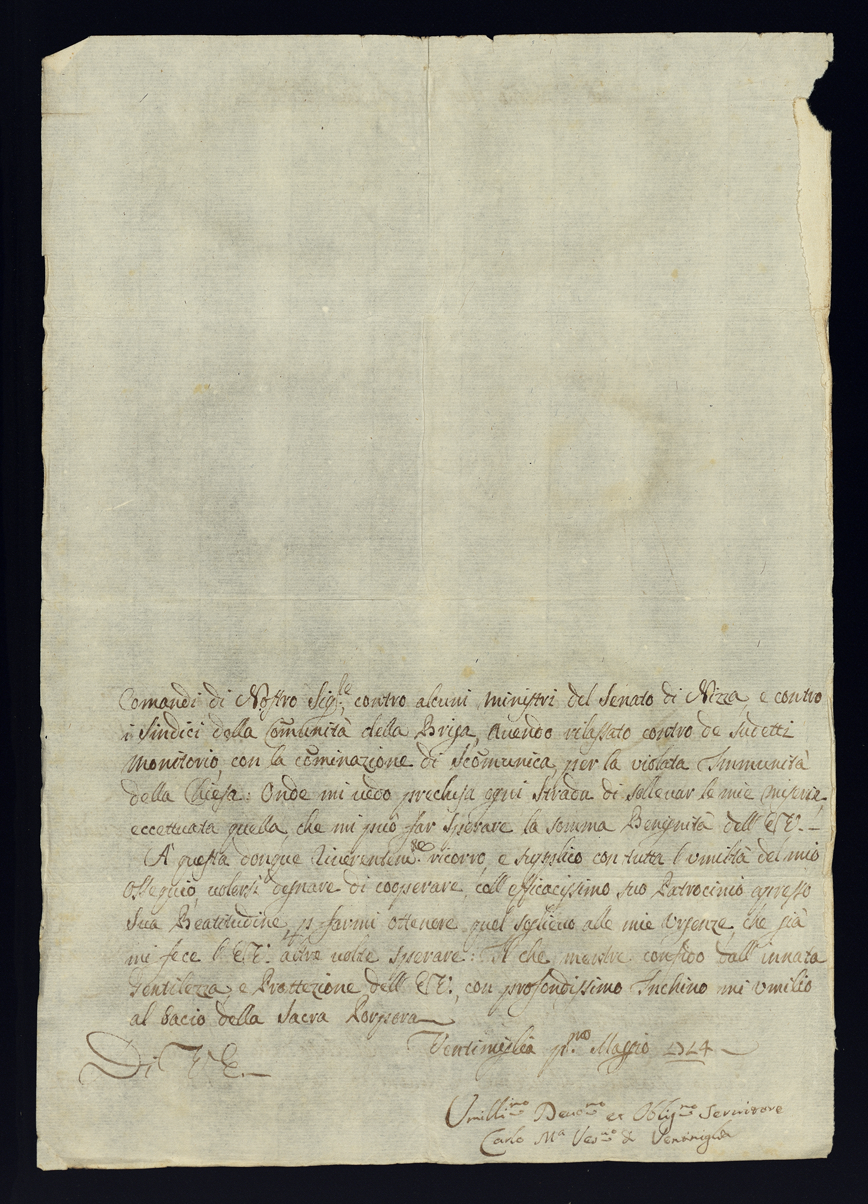 Comandi di Nostro Sig.re, contro alcuni Ministri del Senato di Nizza, e contro
i Sindici della Comunità della Briga, Auendo rilassato contro de sudetti
Monitorio con la cõminazione di Scõmunica, per la violata Immunità
della Chiesa: Onde mi uedo preclusa ogni strada di solleuar le mie miserie,
eccettuata quella, che mi può far sperare la somma Benignità dell' E. V. –
A questa donque riuerentem.te ricorro, e supplico con tutta l'umiltà del mio
ossequio, uolersi degnare di cooperare, coll' efficacissimo suo Patrocinio appresso
Sua Beatitudine, p farmi ottenere quel sollieuo alle mie Urgenze, che già
mi fece l' E. V. altre uolte sperare: Il che mentre confido dall' innata
Gentilezza, e Prottezione dell' E. V., con profondissimo Inchino mi umilio
al bacio della Sacra Porpora
Ventimiglia p.mo Maggio 1724 –
Di V. E. –
Umilli.mo Deuo.mo et Oblig.mo Seruitore
Carlo M.a Ves.uo di Ventimiglia